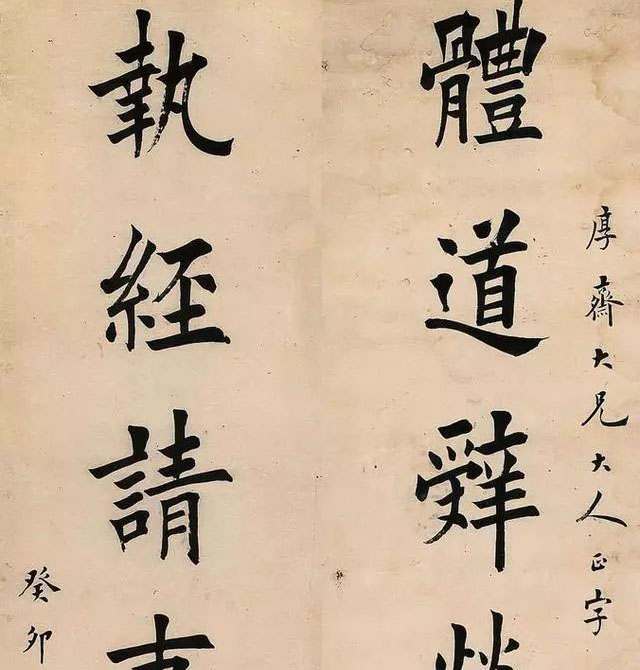 厚齋大兄大人正字
體道辤
執經請
癸卯